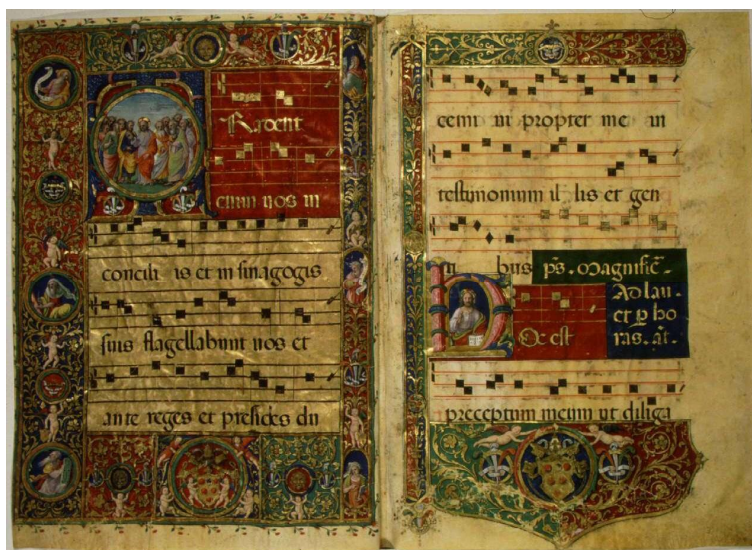 Radent
enim uos in
concili is et in sinagogis
suis flagellabunt uos et
ante reges et presides du
cemi ni propter me in
testimonium il lis et gen
ti bus ps. Magnific̄.
Ad lau-
et p ho
Oc est ras. an̄.
preceptum meum ut diliga